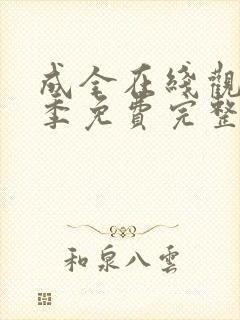 成全在綫觀
季免費完整
和泉八雲